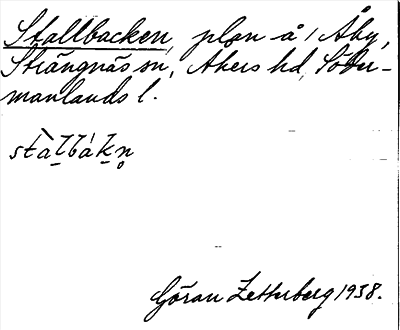 Stallbacken, plan å, Åby,
Strängnäs sn, Åkers hd, Söder-
manlands l.
stàlbákn̥
Göran Zetterberg 1938.